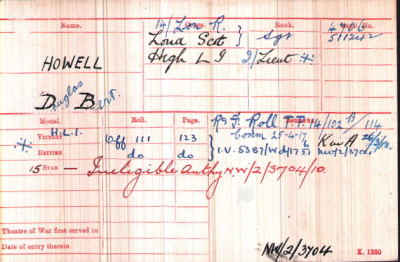 Name. Corps. Rank. Regtl. No.
14/ Lon R. 4766
HOWELL Lond Scot } Sgt 511242
High L I 2/Lieut *
Douglas Bert.
Medal. Roll. Page.
* Victory H.L.I. Off 111 123 R & F Roll T.P. 14/102 B/114
British do do Comm 25-4-17
I.V. 5387/Wd/17 K on A
15 Star — Ineligible Authy NW/2/3704/10.
Theatre of War first served in
Date of entry therein
NW/2/3704 K. 1380